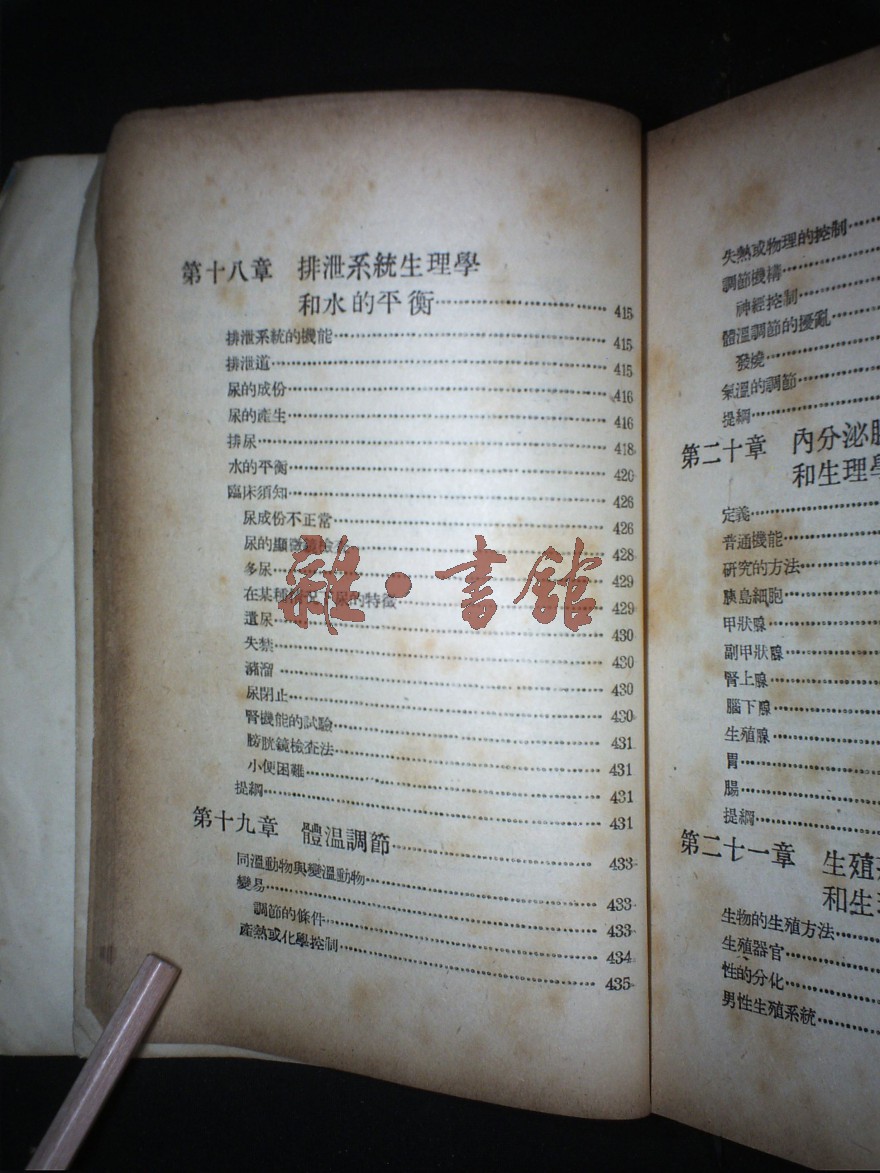 第十八章 排泄系統生理學
和水的平衡 415
排泄系統的機能 415
排泄道 415
尿的成份 416
尿的產生 416
排尿 418
水的平衡 420
臨床須知 426
尿成份不正常 426
尿的顯微鏡檢查 428
多尿 429
在某種情况下尿的特徵 429
遺尿 430
失禁 430
瀦溜 430
尿閉止 430
腎機能的試驗 431
膀胱鏡檢查法 431
小便困難 431
提綱 431
第十九章 體温調節 433
同溫動物與變溫動物 433
變易 433
調節的條件 434
產熱或化學控制 435
雜·書館
失熱或物理的控制
調節機構
神經控制
體溫調節的擾亂
發燒
氣溫的調節
提綱
第二十章 內分泌
和生理學
定義
普通機能
研究的方法
胰島細胞
甲狀腺
副甲狀腺
腎上腺
腦下腺
生殖腺
胃
腸
提綱
第二十一章 生殖
和生
生物的生殖方法
生殖器官
性的分化
男性生殖系統